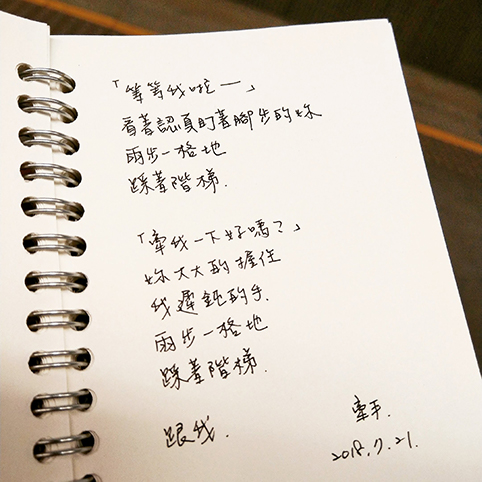 「等等我啦—」
看著認真盯著腳步的妳
兩步一格地
踩著階梯.
「牽我一下好嗎?」
妳大大的握住
我遲鈍的手.
兩步一格地
踩著階梯.
跟我.
牽手.
2018.7.21.